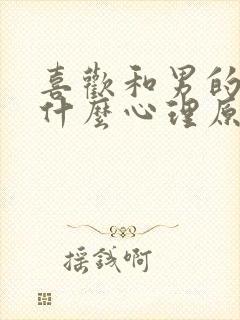 喜歡和男的
什麼心理原
採錢啊